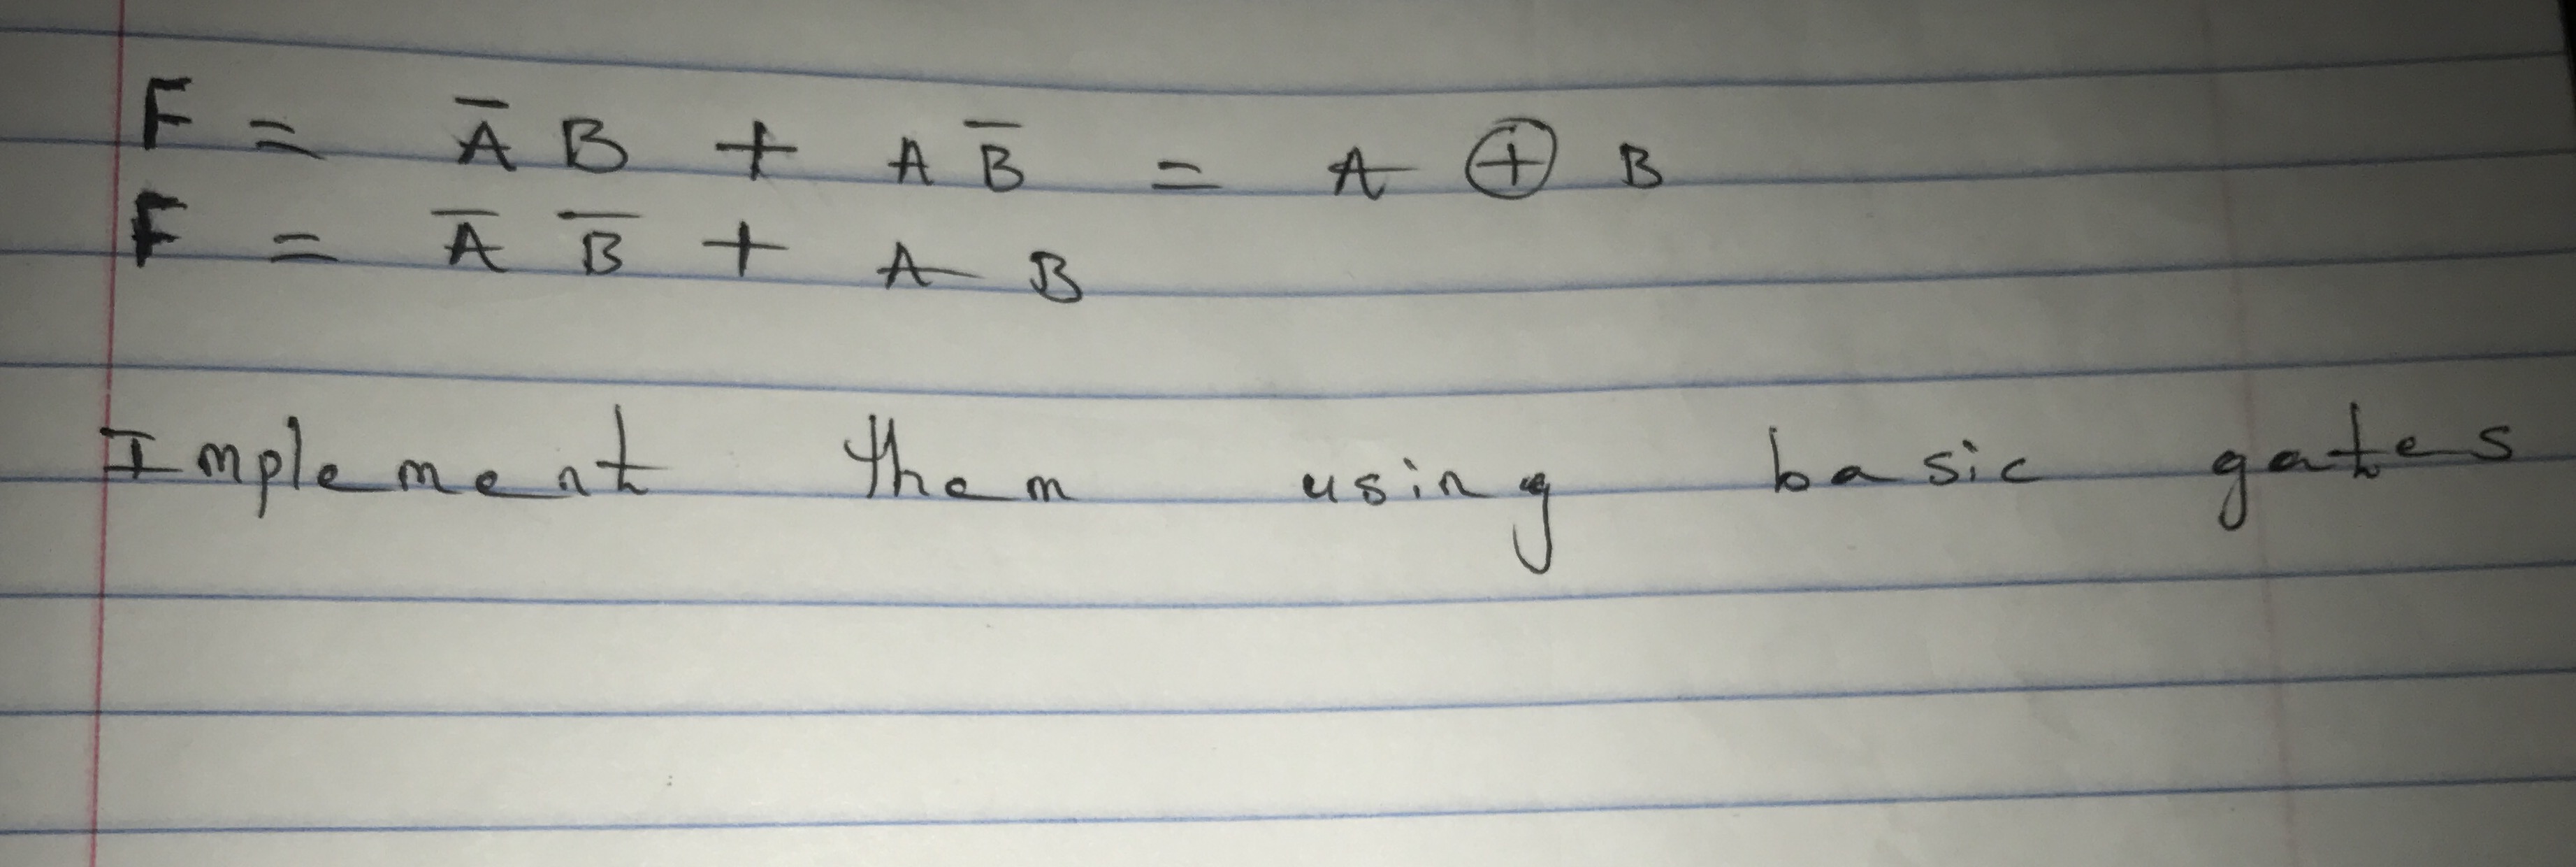 F = A̅ B + A B̅ = A ⊕ B
F = A̅ B̅ + A B
Implement them using basic gates